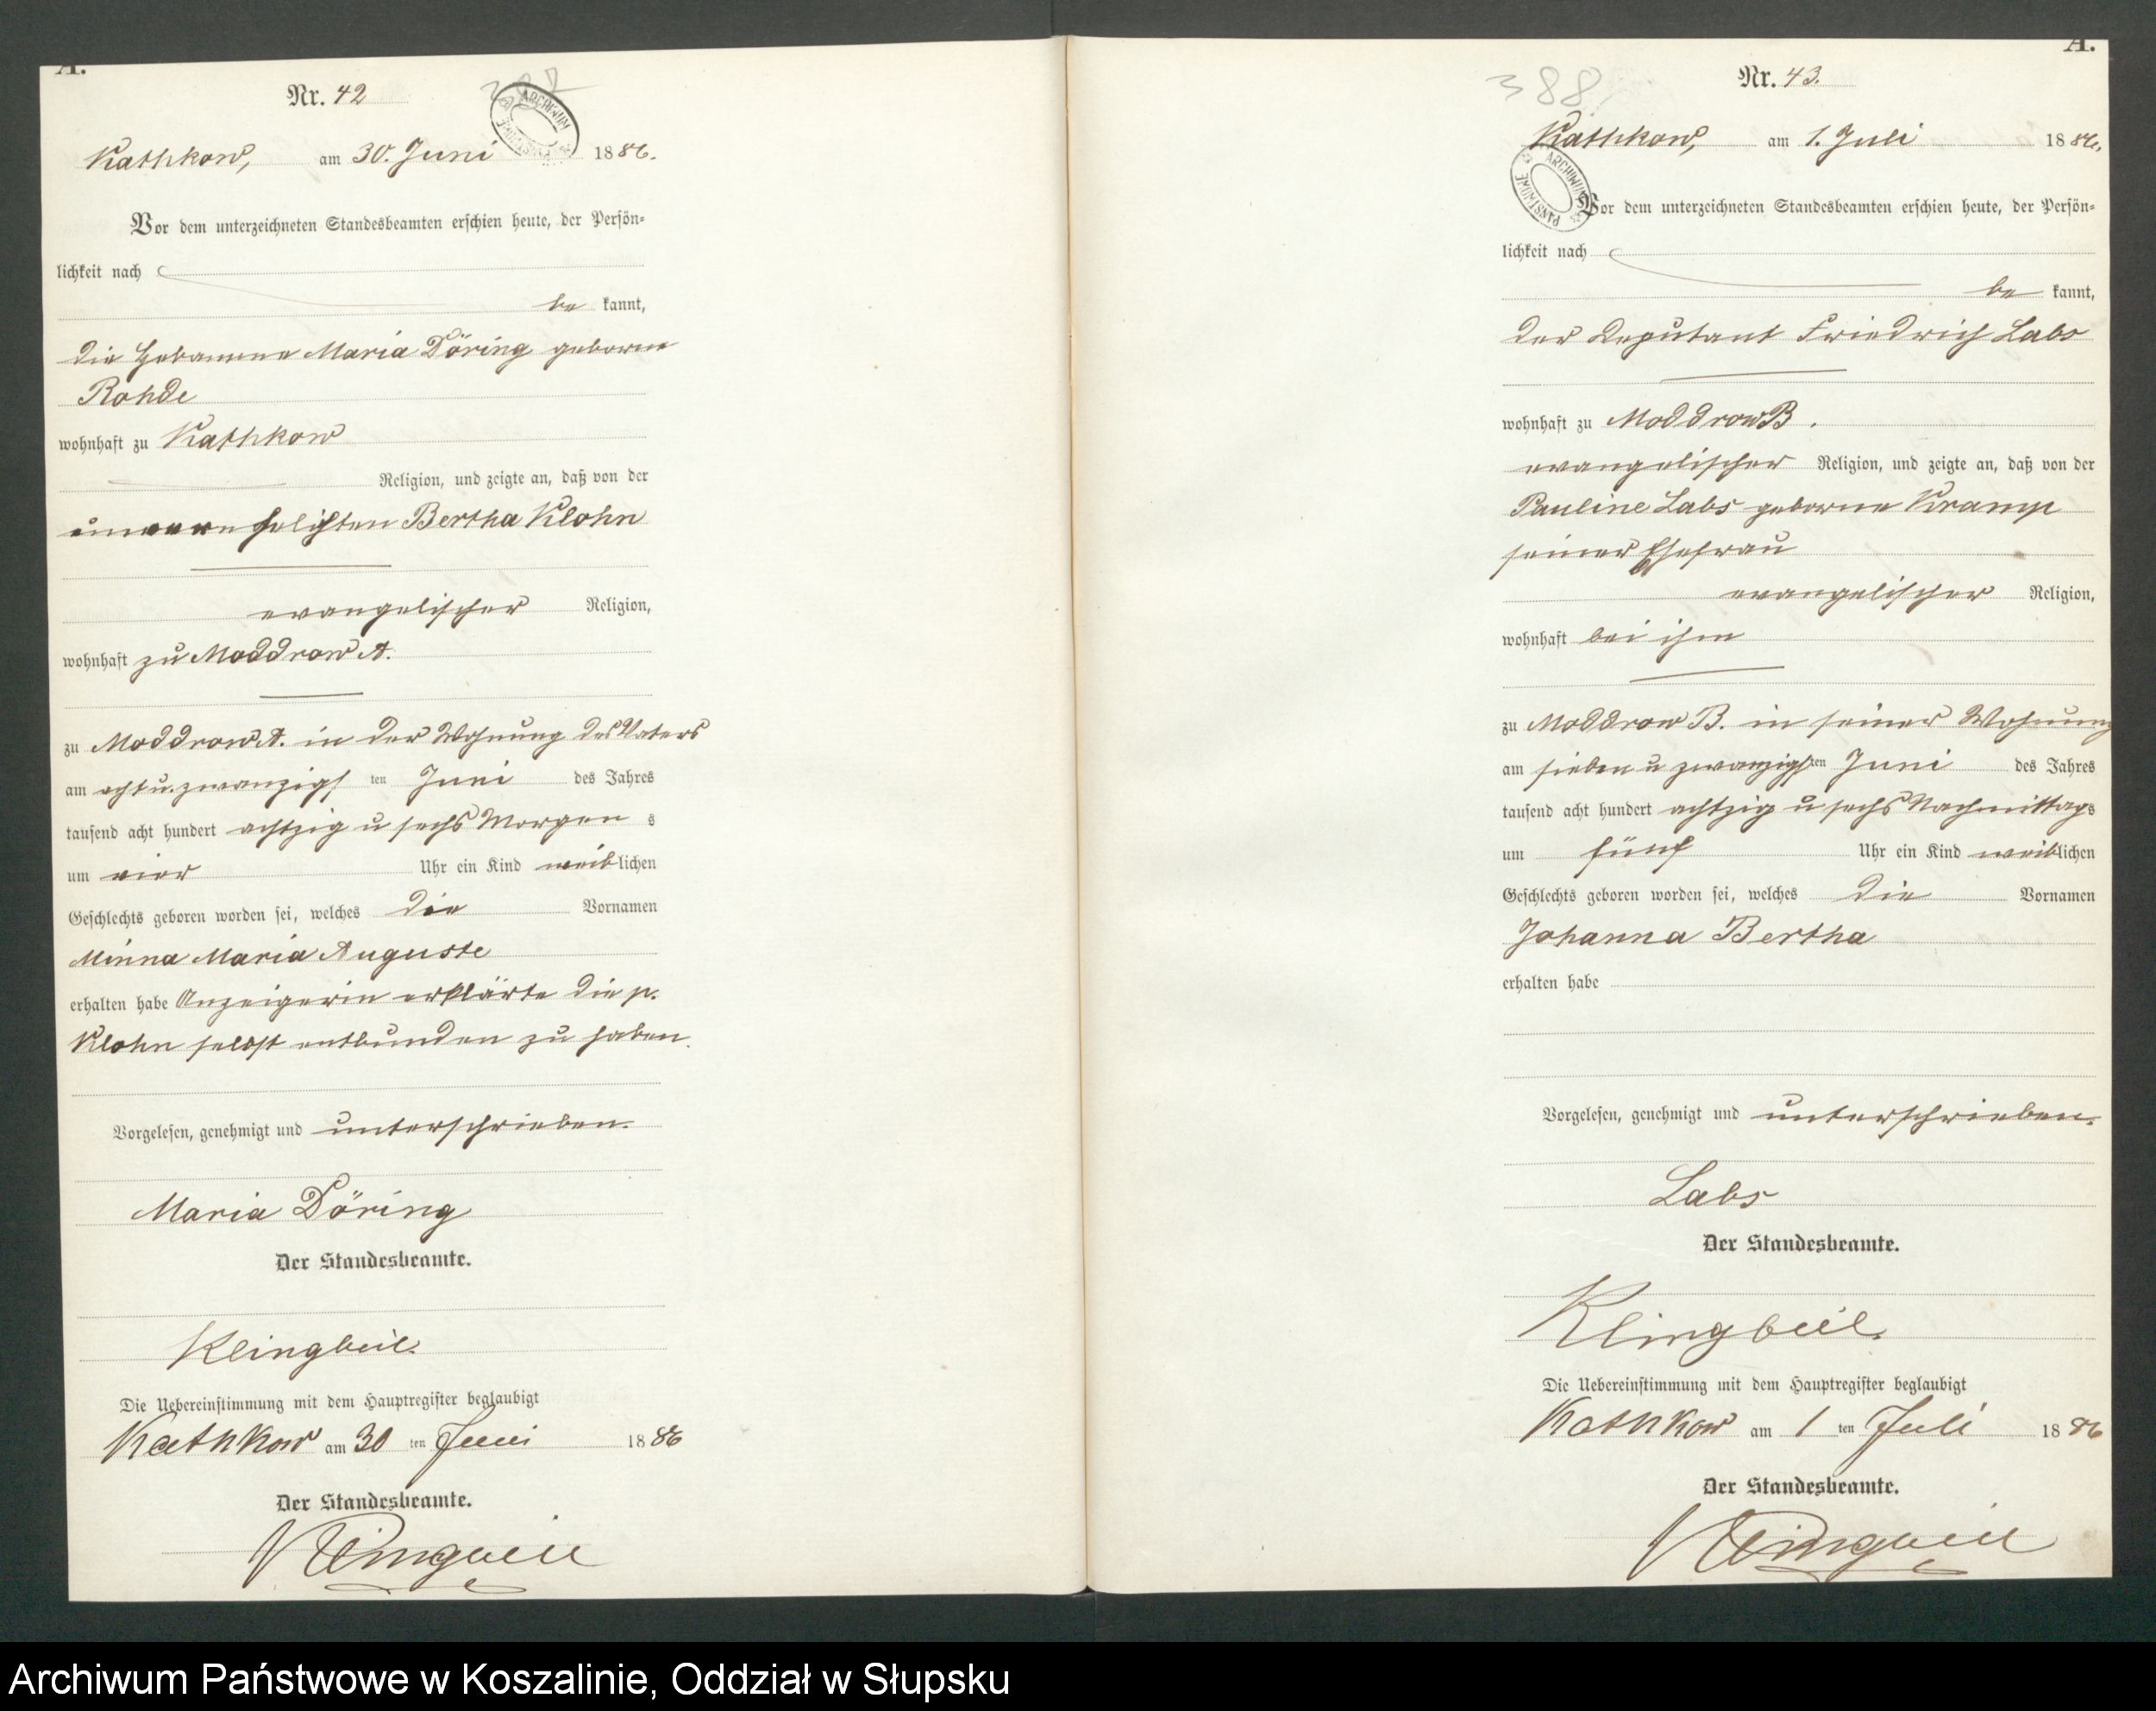 A.
Nr. 42
387
ARCHIWUM PAŃSTWOWE
Kathkow, am 30. Juni 1886.
Vor dem unterzeichneten Standesbeamten erschien heute, der Persön-
lichkeit nach
be kannt,
die Hebamme Maria Döring geborne
Rohde
wohnhaft zu Kathkow
Religion, und zeigte an, daß von der
unverehelichten Bertha Klohn
evangelischer Religion,
wohnhaft zu Moddrow A.
zu Moddrow A. in der Wohnung des Vaters
am acht u. zwanzigs ten Juni des Jahres
tausend acht hundert achtzig u sechs Morgen s
um vier Uhr ein Kind weiblichen
Geschlechts geboren worden sei, welches die Vornamen
Minna Maria Auguste
erhalten habe Anzeigerin erklärte die p.
Klohn selbst entbunden zu haben.
Vorgelesen, genehmigt und unterschrieben.
Maria Döring
Der Standesbeamte.
Klingbeil.
Die Uebereinstimmung mit dem Hauptregister beglaubigt
Kathkow am 30 ten Juni 1886
Der Standesbeamte.
Klingbeil
A.
Nr. 43.
388
Kathkow, am 1. Juli 1886.
ARCHIWUM PAŃSTWOWE
Vor dem unterzeichneten Standesbeamten erschien heute, der Persön-
lichkeit nach
be kannt,
der Deputant Friedrich Labs
wohnhaft zu Moddrow B.
evangelischer Religion, und zeigte an, daß von der
Pauline Labs geborne Kramp
seiner Ehefrau
evangelischer Religion,
wohnhaft bei ihm
zu Moddrow B. in seiner Wohnung
am sieben u zwanzigsten Juni des Jahres
tausend acht hundert achtzig u sechs Nachmittags
um fünf Uhr ein Kind weiblichen
Geschlechts geboren worden sei, welches die Vornamen
Johanna Bertha
erhalten habe
Vorgelesen, genehmigt und unterschrieben.
Labs
Der Standesbeamte.
Klingbeil.
Die Uebereinstimmung mit dem Hauptregister beglaubigt
Kathkow am 1 ten Juli 1886
Der Standesbeamte.
Klingbeil
Archiwum Państwowe w Koszalinie, Oddział w Słupsku